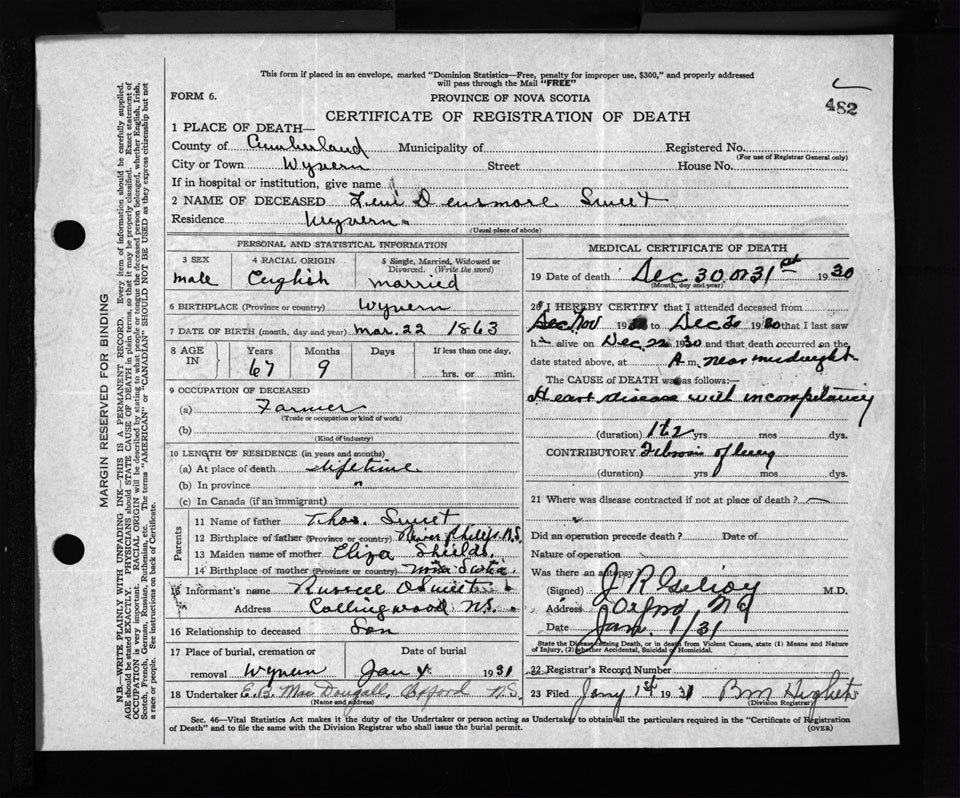 This form if placed in an envelope, marked "Dominion Statistics—Free, penalty for improper use, $300," and properly addressed
will pass through the Mail "FREE"
FORM 6.
PROVINCE OF NOVA SCOTIA
482
CERTIFICATE OF REGISTRATION OF DEATH
1 PLACE OF DEATH—
County of Cumberland Municipality of Registered No.
(For use of Registrar General only)
City or Town Wyvern Street House No.
If in hospital or institution, give name
2 NAME OF DECEASED Levi Densmore Sweet
Residence Wyvern
(Usual place of abode)
PERSONAL AND STATISTICAL INFORMATION
3 SEX 4 RACIAL ORIGIN 5 Single, Married, Widowed or
Divorced. (Write the word)
male English married
6 BIRTHPLACE (Province or country) Wyvern
7 DATE OF BIRTH (month, day and year) Mar. 22 1863
8 AGE IN Years Months Days If less than one day,
67 9 hrs. or min.
9 OCCUPATION OF DECEASED
(a) Farmer
(Trade or occupation or kind of work)
(b)
(Kind of industry)
10 LENGTH OF RESIDENCE (in years and months)
(a) At place of death lifetime
(b) In province "
(c) In Canada (if an immigrant)
Parents
11 Name of father Thos. Sweet
12 Birthplace of father (Province or country) River Philip N.S.
13 Maiden name of mother Eliza Shields.
14 Birthplace of mother (Province or country) Nova Scotia
15 Informant's name Russell O Sweet
Address Collingwood N.S.
16 Relationship to deceased Son
17 Place of burial, cremation or Date of burial
removal Wyvern Jan 1931
18 Undertaker E. B. MacDougall, Oxford N.S.
(Name and address)
MEDICAL CERTIFICATE OF DEATH
19 Date of death Dec 30 or 31st 1930
(Month, day and year)
20 I HEREBY CERTIFY that I attended deceased from
Dec Nov 193 to Dec 30 1930 that I last saw
h alive on Dec 22 1930 and that death occurred on the
date stated above, at A m. near midnight
The CAUSE OF DEATH was as follows:—
Heart disease with incompetancy
(duration) 1 to 2 yrs mos dys.
CONTRIBUTORY Fibrosis of
(duration) yrs mos dys.
21 Where was disease contracted if not at place of death?
Did an operation precede death? Date of
Nature of operation
Was there an autopsy?
(Signed) J R M.D.
Address Oxford N S
Date Jan. 1/31
State the Disease causing Death, or in death from Violent Causes, state (1) Means and Nature
of Injury, (2) whether Accidental, Suicidal or Homicidal.
22 Registrar's Record Number
23 Filed Jany 1st 1931 B M
(Division Registrar)
Sec. 46—Vital Statistics Act makes it the duty of the Undertaker or person acting as Undertaker to obtain all the particulars required in the "Certificate of Registration
of Death" and to file the same with the Division Registrar who shall issue the burial permit.
(OVER)
MARGIN RESERVED FOR BINDING
N.B.—WRITE PLAINLY WITH UNFADING INK—THIS IS A PERMANENT RECORD. Every item of information should be carefully supplied.
AGE should be stated EXACTLY. PHYSICIANS should STATE CAUSE OF DEATH in plain terms, so that it may be properly classified. Exact statement of
OCCUPATION is very important. RACIAL ORIGIN will be described by stating to what people or tongue the deceased person belonged, whether English, Irish,
Scotch, French, German, Russian, Ruthenian, etc. The terms "AMERICAN" or "CANADIAN" SHOULD NOT BE USED as they express citizenship but not
a race or people. See instructions on back of Certificate.